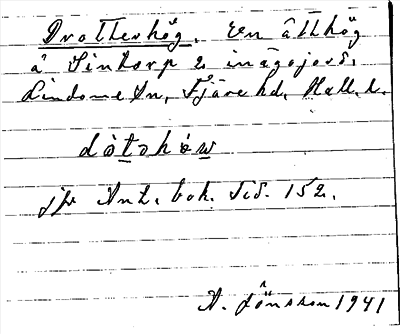 Drottershög. En ätthög
å Sintorp 2 inägojord.
Lindome sn, Fjäre hd, Hall. l.
dòtəhöw
jfr Ant. bok. sid. 152.
A. Jönsson 1941